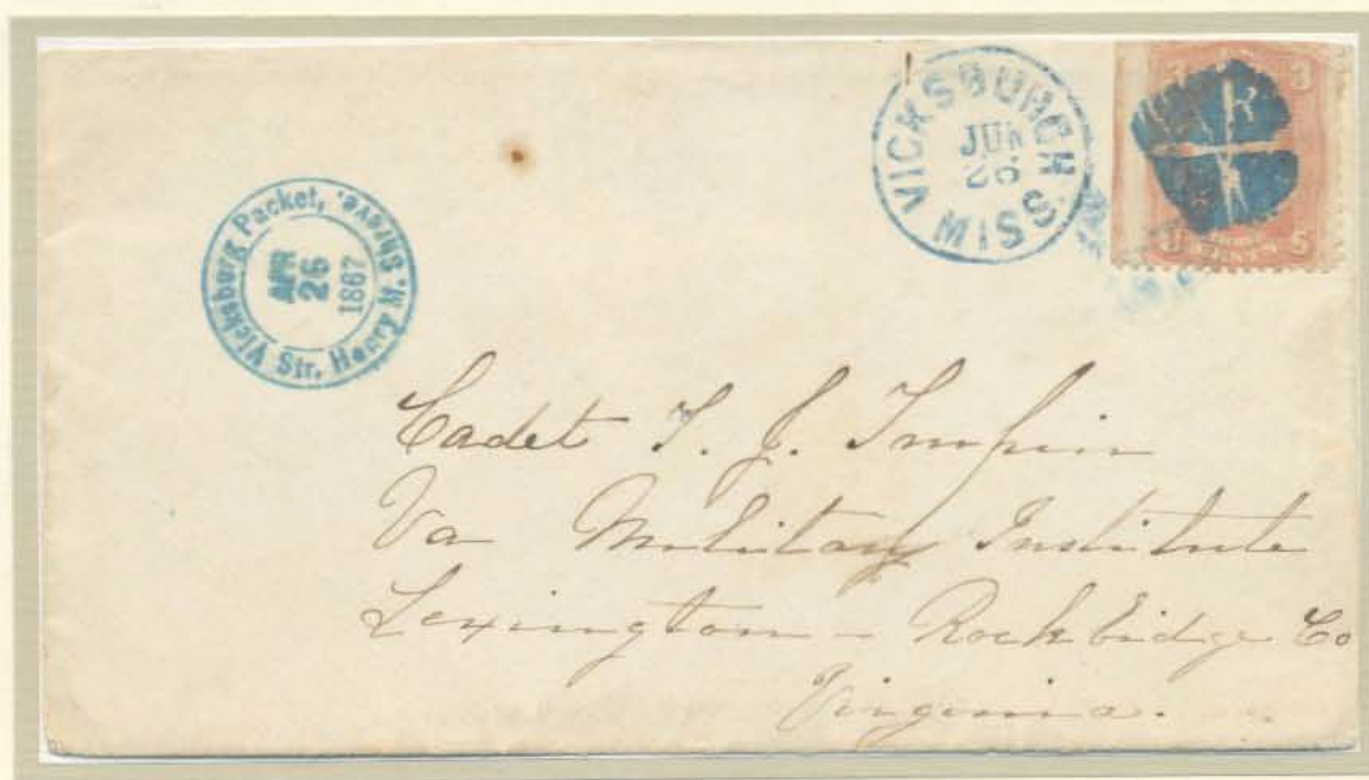 Vicksburg Packet,
Str. Henry M. Shreve.
APR
26
1867
VICKSBURGH
JUN
26
MISS.
3
CENTS
Cadet T. J.
Va Military Institute
Lexington - Rockbridge Co
Virginia.